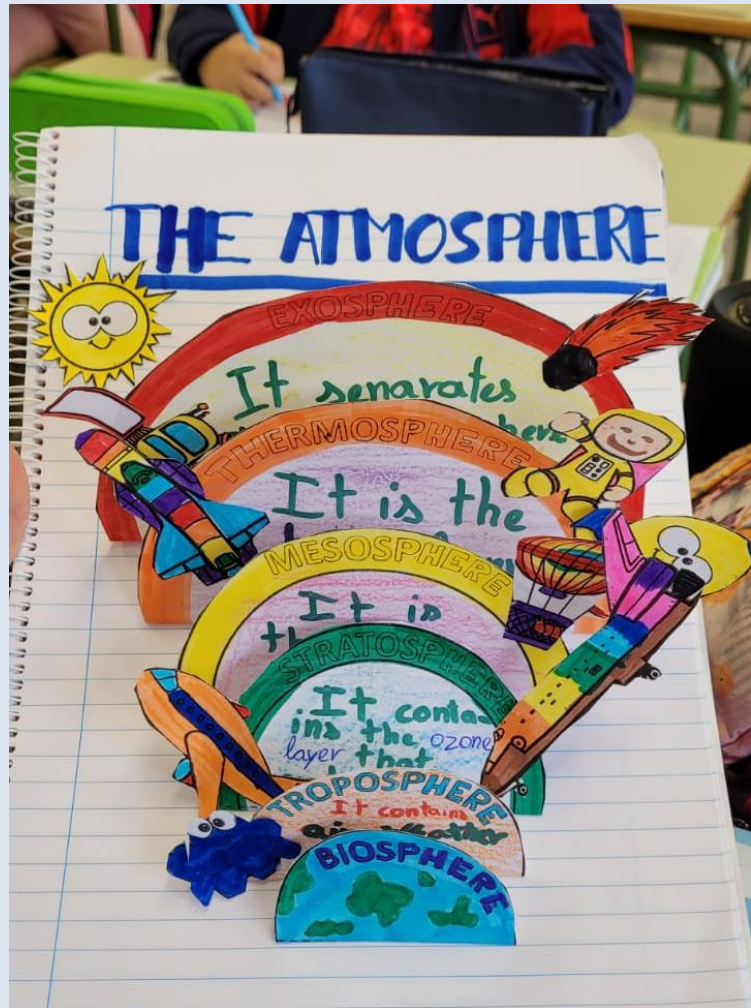 THE ATMOSPHERE
EXOSPHERE
It senarates
here
THERMOSPHERE
It is the
MESOSPHERE
It is
STRATOSPHERE
It conta-
ins the ozone
layer that
TROPOSPHERE
It contains
air
BIOSPHERE